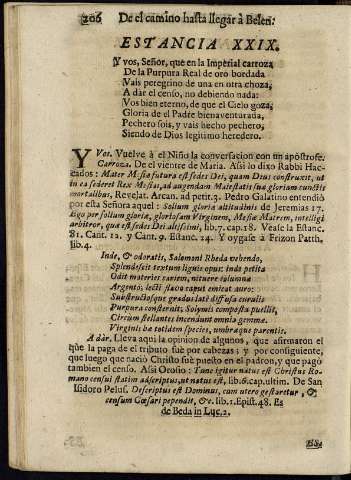 206 De el camino hasta llegar à Belen:
ESTANCIA XXIX.
Y vos, Señor, que en la Imperial carroza
De la Purpura Real de oro bordada
Vais peregrino de una en otra choza,
A dàr el censo, no debiendo nada:
Vos bien eterno, de que el Cielo goza,
Gloria de el Padre bienaventurada,
Pechero sois, y vais hecho pechero,
Siendo de Dios legitimo heredero.
Y Vos. Vuelve à el Niño la conversacion con un apòstrofe.
Carroza. De el vientre de Maria. Assi lo dixo Rabbi Hac-
cados: Mater Messiæ futura est sedes Dei, quam Deus construxit, ut
in ea sederet Rex Messias, ad augendam Maiestatis suæ gloriam cunctis
mortalibus, Revelat. Arcan. ad petit. 3. Pedro Galatino entendiò
por esta Señora aquel: Solium gloriæ altitudinis de Jeremias 17.
Ego per solium gloriæ, gloriosam Virginem, Messiæ Matrem, intelligi
arbitror, quæ est sedes Dei altissimi, lib. 7. cap. 18. Vease la Estanc.
81. Cant. 12. y Cant. 9. Estanc. 24. Y oygase à Frizon Patth.
lib. 4.
Inde, & odoratis, Salomoni Rheda vehendo,
Splendescit textum lignis opus: inde petita
Odit materies cariem, nituere columnæ
Argento; lecti flavo caput emicat auro:
Substructosque gradus latè diffusa curulis
Purpura consternit. Soliumq; composta puellis,
Circum stellantes incendunt omnia gemmæ.
Virginis hæ totidem species, umbræque parentis.
A dàr. Lleva aqui la opinion de algunos, que afirmaron el
que la paga de el tributo fuè por cabezas; y por consiguiente,
que luego que naciò Christo fuè puesto en el padron, y que pagò
tambien el censo. Assi Orosio: Tunc igitur natus est Christus Ro-
mano censui statim adscriptus, ut natus est, lib. 6. cap. ultim. De San
Isidoro Pelus. Descriptus est Dominus, cum utero gestaretur, &
censum Cæsari pependit, &c. lib. 1. Epist. 48. Es
de Beda in Luc. 2.